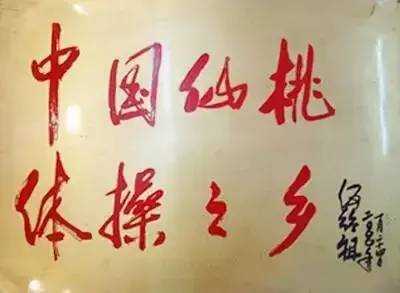 中国仙桃
体操之乡
伍绍祖